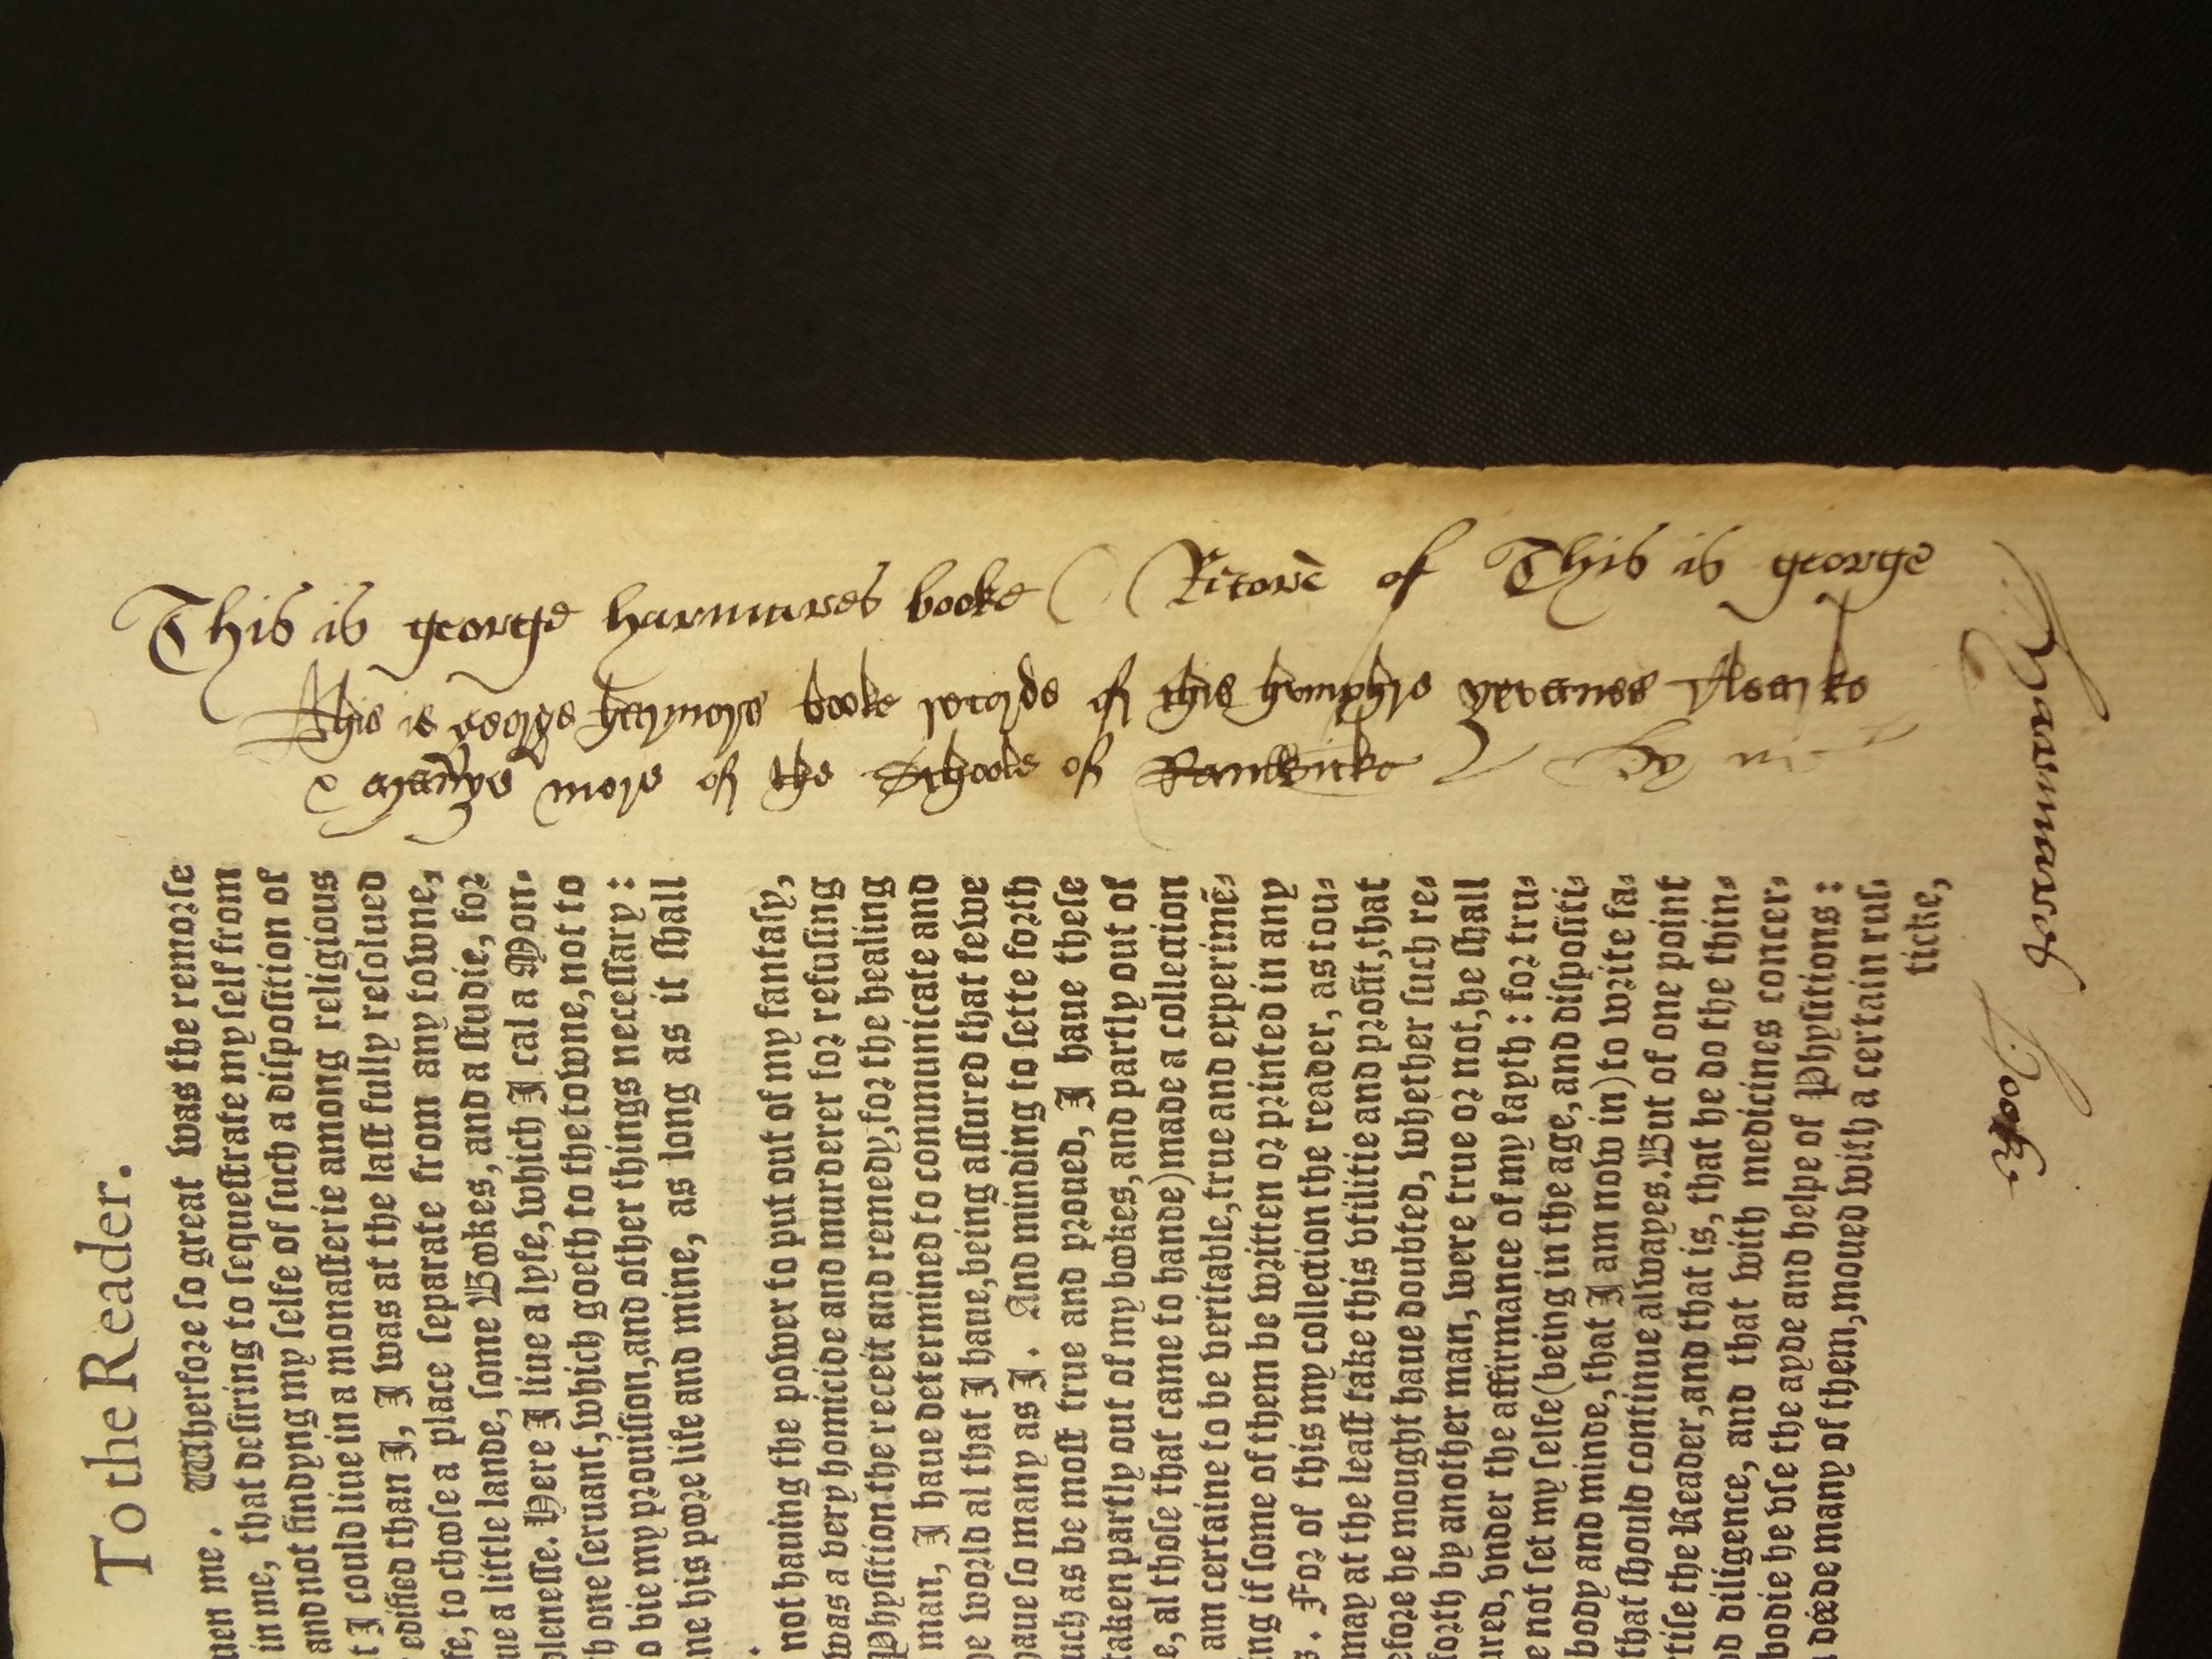 This is george harmares booke Recorde of This is george
This is george harmors booke recorde of this humphre yevanes Clearke
& manye more of the Schoole of
Harmares Booke
To the Reader.
uen me. Wherfore so great was the remorse
in me, that desiring to sequestrate my self from
and not findyng my selfe of such a disposition of
t I could liue in a monasterie among religious
edified than I, I was at the last fully resolued
fe, to chose a place separate from any towne,
ue a little lande, some Bookes, and a studie, for
plenesse. Here I liue a lyfe, which I cal a Mon-
h one seruant, which goeth to the towne, not to
o bie my prouision, and other things necessary:
ne his pore life and mine, as long as it shall
not hauing the power to put out of my fantasy,
was a very homicide and murderer for refusing
Physition the receit and remedy, for the healing
man, I haue determined to communicate and
e world al that I haue, being assured that fewe
haue so many as I. And minding to sette forth
uch as be most true and proued, I haue these
taken partly out of my bookes, and partly out of
e, al those that came to hande) made a collection
am certaine to be veritable, true and experimē-
ing if some of them be written or printed in any
s. For of this my collection the reader, as tou-
may at the least take this vtilitie and profit, that
efore he mought haue doubted, whether such re-
forth by another man, were true or not, he shall
ured, vnder the affirmance of my fayth: for tru-
e not set my selfe (being in the age, and dispositi-
body and minde, that I am now in) to write fa-
that should continue alwayes. But of one point
tise the Reader, and that is, that he do the thin-
od diligence, and that with medicines concer-
bodie he vse the ayde and helpe of Physitions:
deede many of them, moued with a certain rus-
ticke,